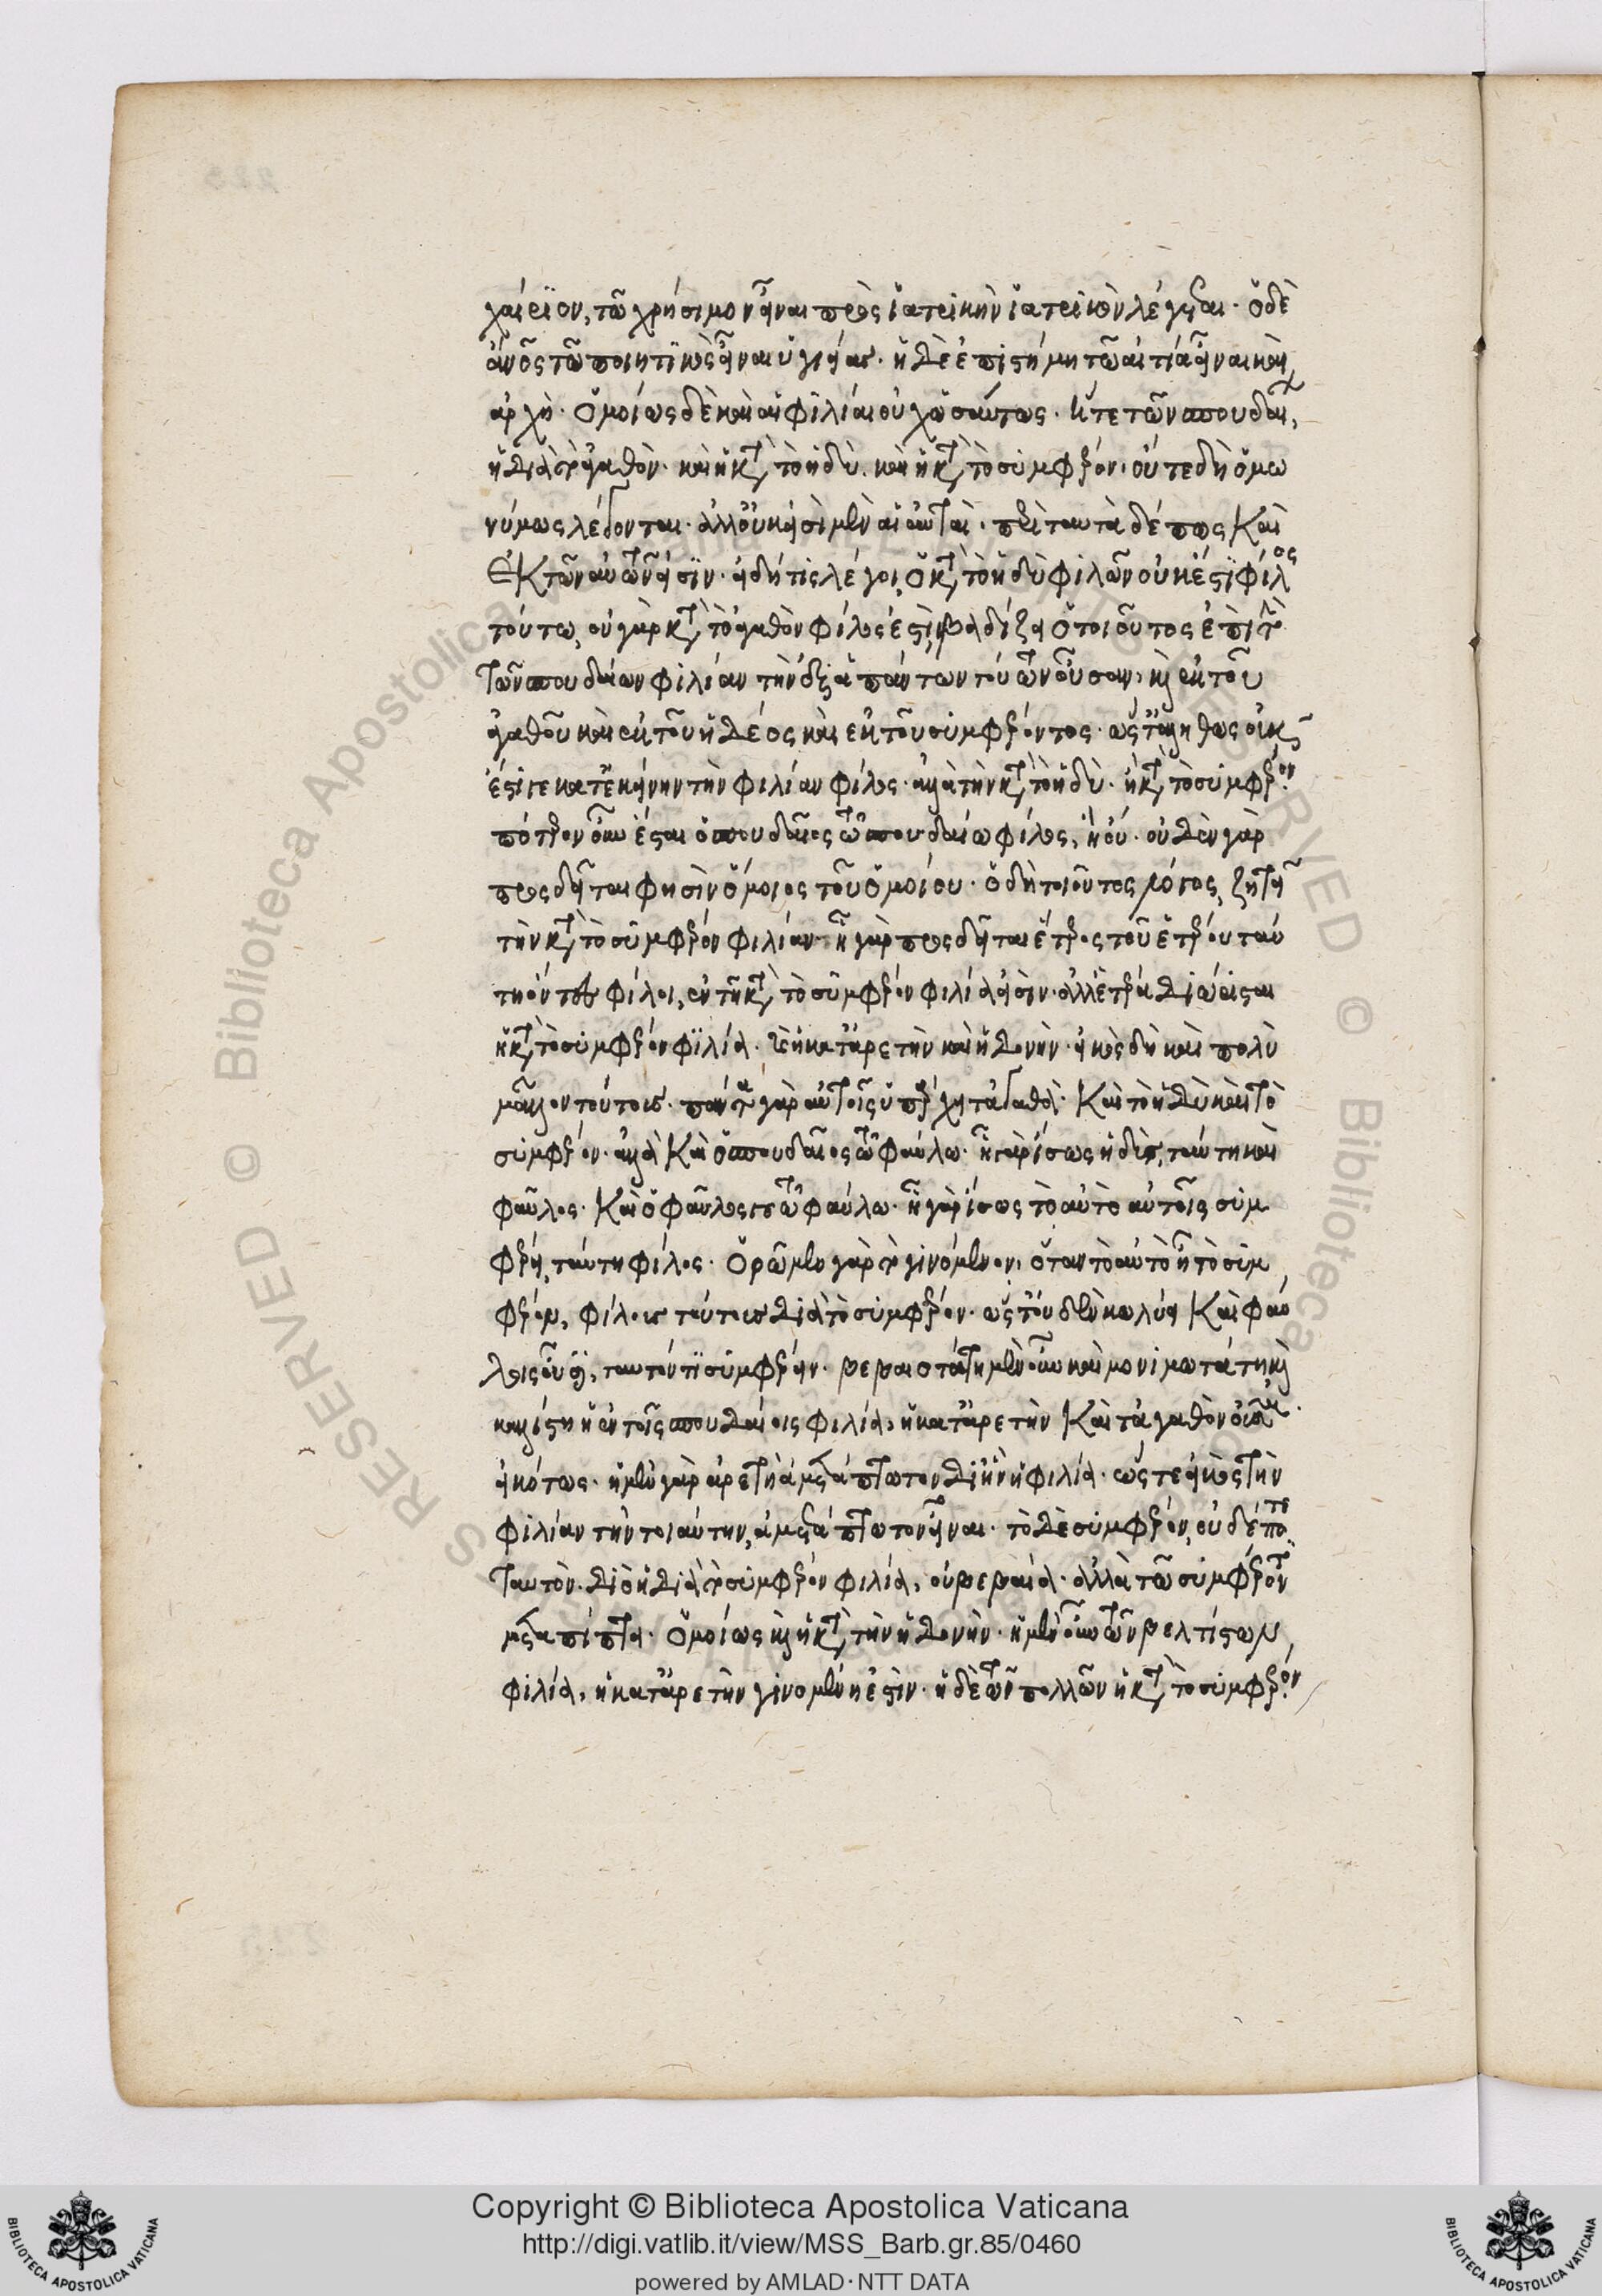 χαιρίον, τῶ χρήσιμον εἶναι πρὸς ἰατρικὴν ἰατρικὸν λέγεται· ὁ δὲ
ἄνος τῶ ποιητικὸς εἶναι ὑγιείας· ἡ δὲ ἐπιστήμη τῶ αἰτία εἶναι καὶ
ἀρχὴ· ὁμοίως δὲ καὶ αἱ φιλίαι οὐχ ὡσαύτως· ἥτε τῶν σπουδαί,
ἡ διὰ τὸ ἀγαθὸν· καὶ ἡ κατὰ τὸ ἡδὺ· καὶ ἡ κατὰ τὸ συμφέρον· οὔτε δὴ ὁμω
νύμως λέγονται· ἀλλ' οὔκ εἰσὶ μὲν αἱ αὐταὶ· περὶ ταυτὰ δέ πως καὶ
ἐκ τῶν αὐτῶν εἰσὶν· εἰ δή τις λέγοι, ὁ κατὰ τὸ ἡδὺ φιλῶν οὐκ ἔστι φίλος
τούτω, οὐ γὰρ κατὰ τὸ ἀγαθὸν φίλος ἐστὶ, βαδίζει ὁ τοιοῦτος ἐπὶ τὴν
τῶν σπουδαίων φιλίαν τὴν ἐξ ἁπάντων τούτων οὖσαν, καὶ ἐκ τοῦ
ἀγαθοῦ καὶ ἐκ τοῦ ἡδέος καὶ ἐκ τοῦ συμφέροντος· ὥστ' ἀληθῶς οὐκ
ἔστιτε κατ' ἐκείνην τὴν φιλίαν φίλος· ἀλλὰ τὴν κατὰ τὸ ἡδὺ· ἢ κατὰ τὸ συμφέρον·
πότερον οὖν ἔσται ὁ σπουδαῖος τῶ σπουδαίω φίλος, ἢ οὔ· οὐδὲν γὰρ
προσδεῖται φησὶν ὁ ὅμοιος τοῦ ὁμοίου· ὁ δὴ τοιοῦτος λόγος, ζητεῖ
τὴν κατὰ τὸ συμφέρον φιλίαν· ἧ γὰρ προσδεῖται ἕτερος τοῦ ἑτέρου ταύ
τη ὄντες φίλοι, ἐν τῆ κατὰ τὸ συμφέρον φιλία εἰσὶν· ἀλλ' ἑτέρα διώρισται
ἡ κατὰ τὸ συμφέρον φιλία· καὶ ἡ κατ' ἀρετὴν καὶ ἡδονὴν· εἰκὸς δὴ καὶ πολὺ
μᾶλλον τούτοις· πάντα γὰρ αὐτοῖς ὑπάρχει τἀγαθὰ· καὶ τὸ ἡδὺ καὶ τὸ
συμφέρον· ἀλλὰ καὶ ὁ σπουδαῖος τῶ φαύλω· ἧ γὰρ ἴσως ἡδὺς, ταύτη καὶ
φαῦλος· καὶ ὁ φαῦλος τῶ φαύλω· ἧ γὰρ ἴσως τὸ αὐτὸ αὐτοῖς συμ
φέρει, ταύτη φίλος· ὁρῶμεν γὰρ τὸ γινόμενον, ὅταν τὸ αὐτὸ ἦ τὸ συμ
φέρον, φίλοις τούτοις διὰ τὸ συμφέρον· ὥστ' οὐδὲν κωλύει καὶ φαύ
λοις οὖσι, ταυτόν τι συμφέρειν· βεβαιοτάτη μὲν οὖν καὶ μονιμωτάτη καὶ
καλλίστη ἡ ἐν τοῖς σπουδαίοις φιλία, ἡ κατ' ἀρετὴν καὶ τἀγαθὸν οὖσα·
εἰκότως· ἡ μὲν γὰρ ἀρετὴ ἀμετάπτωτον δι' ἣν ἡ φιλία· ὥστε εἰκὸς τὴν
φιλίαν τὴν τοιαύτην, ἀμετάπτωτον εἶναι· τὸ δὲ συμφέρον, οὐδέποτε
ταυτὸν· διὸ ἡ διὰ τὸ συμφέρον φιλία, οὐ βεβαία· ἀλλὰ τῶ συμφέροντι
μεταπίπτει· ὁμοίως καὶ ἡ κατὰ τὴν ἡδονὴν· ἡ μὲν οὖν τῶν βελτίστων
φιλία, ἡ κατ' ἀρετὴν γινομένη ἐστὶν· ἡ δὲ τῶν πολλῶν ἡ κατὰ τὸ συμφέρον·
Copyright © Biblioteca Apostolica Vaticana
http://digi.vatlib.it/view/MSS_Barb.gr.85/0460
powered by AMLAD·NTT DATA